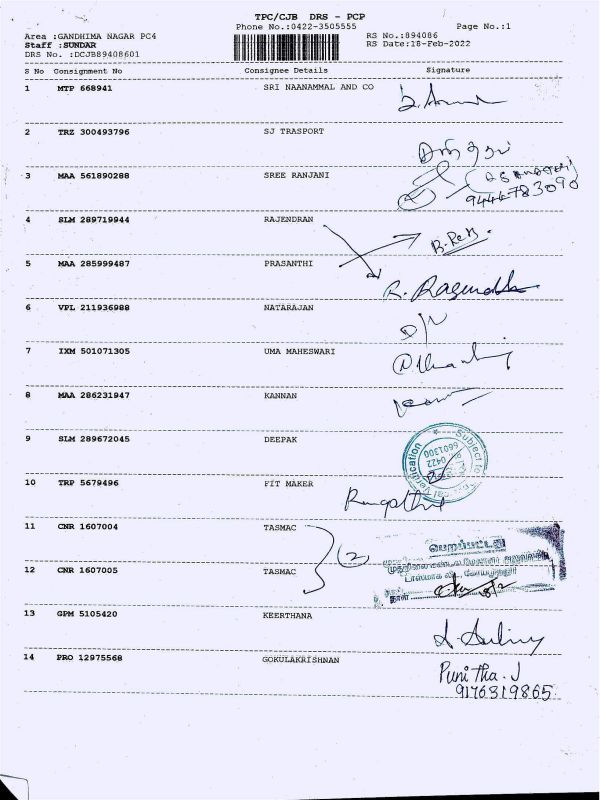 TPC/CJB DRS - PCP
Phone No.:0422-3505555 Page No.:1
Area :GANDHIMA NAGAR PC4 RS No.:894086
Staff :SUNDAR RS Date:18-Feb-2022
DRS No. :DCJB89408601
S No Consignment No Consignee Details Signature
1 MTP 668941 SRI NAANAMMAL AND CO
2 TRZ 300493796 SJ TRASPORT
3 MAA 561890288 SREE RANJANI
9446783090
4 SLM 289719944 RAJENDRAN
5 MAA 285999487 PRASANTHI
6 VPL 211936988 NATARAJAN
7 IXM 501071305 UMA MAHESWARI
8 MAA 286231947 KANNAN
9 SLM 289672045 DEEPAK
Subject to
0422
6601300
10 TRP 5679496 FIT MAKER
11 CNR 1607004 TASMAC
2
பெறப்பட்டது
12 CNR 1607005 TASMAC
நாள்
13 GPM 5105420 KEERTHANA
14 PRO 12975568 GOKULAKRISHNAN
Punitha.J
9176319865